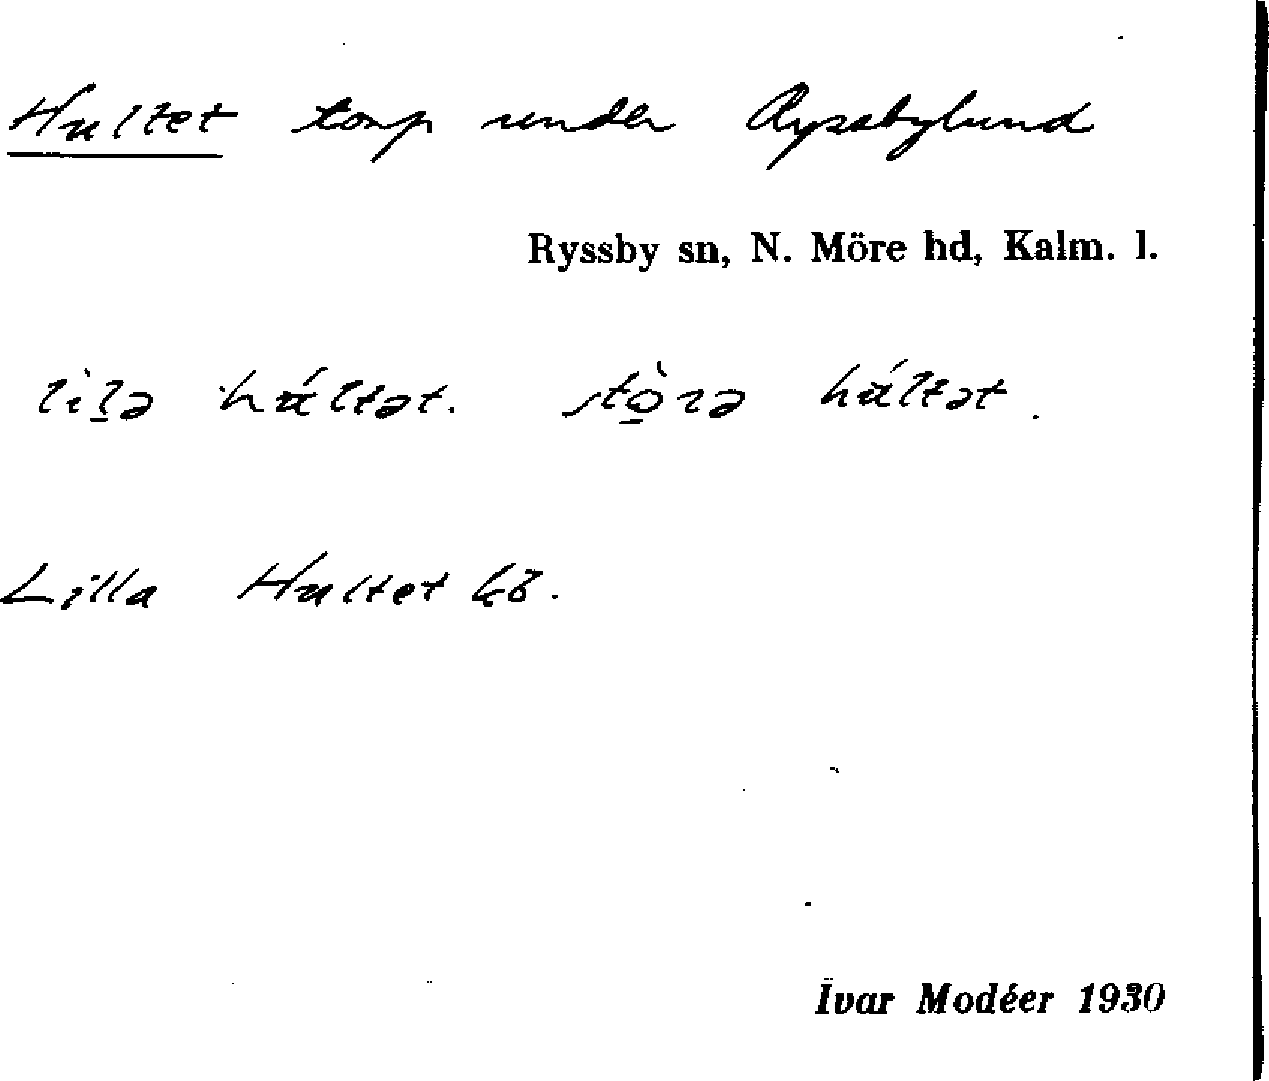 Hultet torp under Ryssbylund
Ryssby sn, N. Möre hd, Kalm. l.
lìl̠ə húltət. stò̠rə húltət.
Lilla Hultet
Ivar Modéer 1930